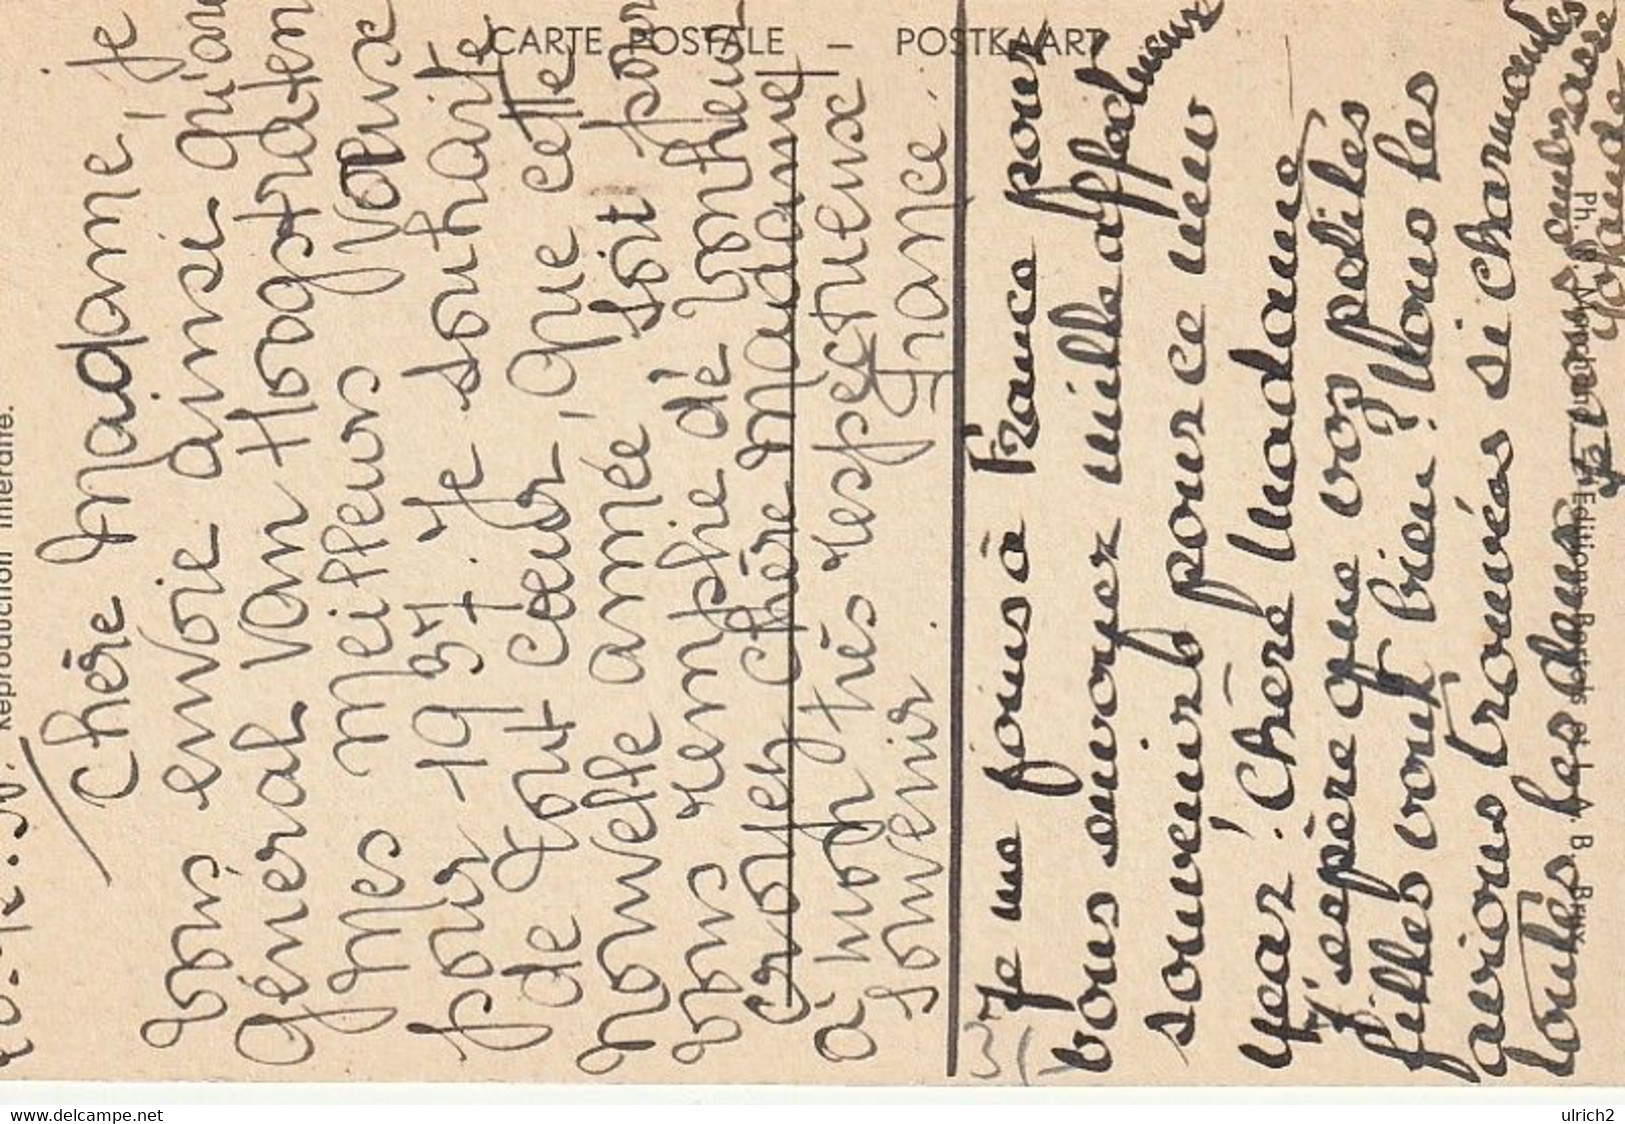 CARTE POSTALE – POSTKAART
Reproduction interdite.
Chère Madame, je
vous envoie ainsi qu'au
Général van Hoogstraten
mes meilleurs voeux
pour 1937. Je souhaite
de tout cœur, que cette
nouvelle année soit pour
vous remplie de bonheur
Croyez chère Madame
à mon très respectueux
souvenir. France.
Je me joins à France pour
vous envoyer mille affectueux
souvenirs pour ce new
year! Chère Madame
J'espère que vos petites
filles vont bien? Nous les
avions trouvées si charmantes
toutes les deux
Je vous embrasse
Yolande
Editions Postales
B. Brux.
www.delcampe.net
ulrich2